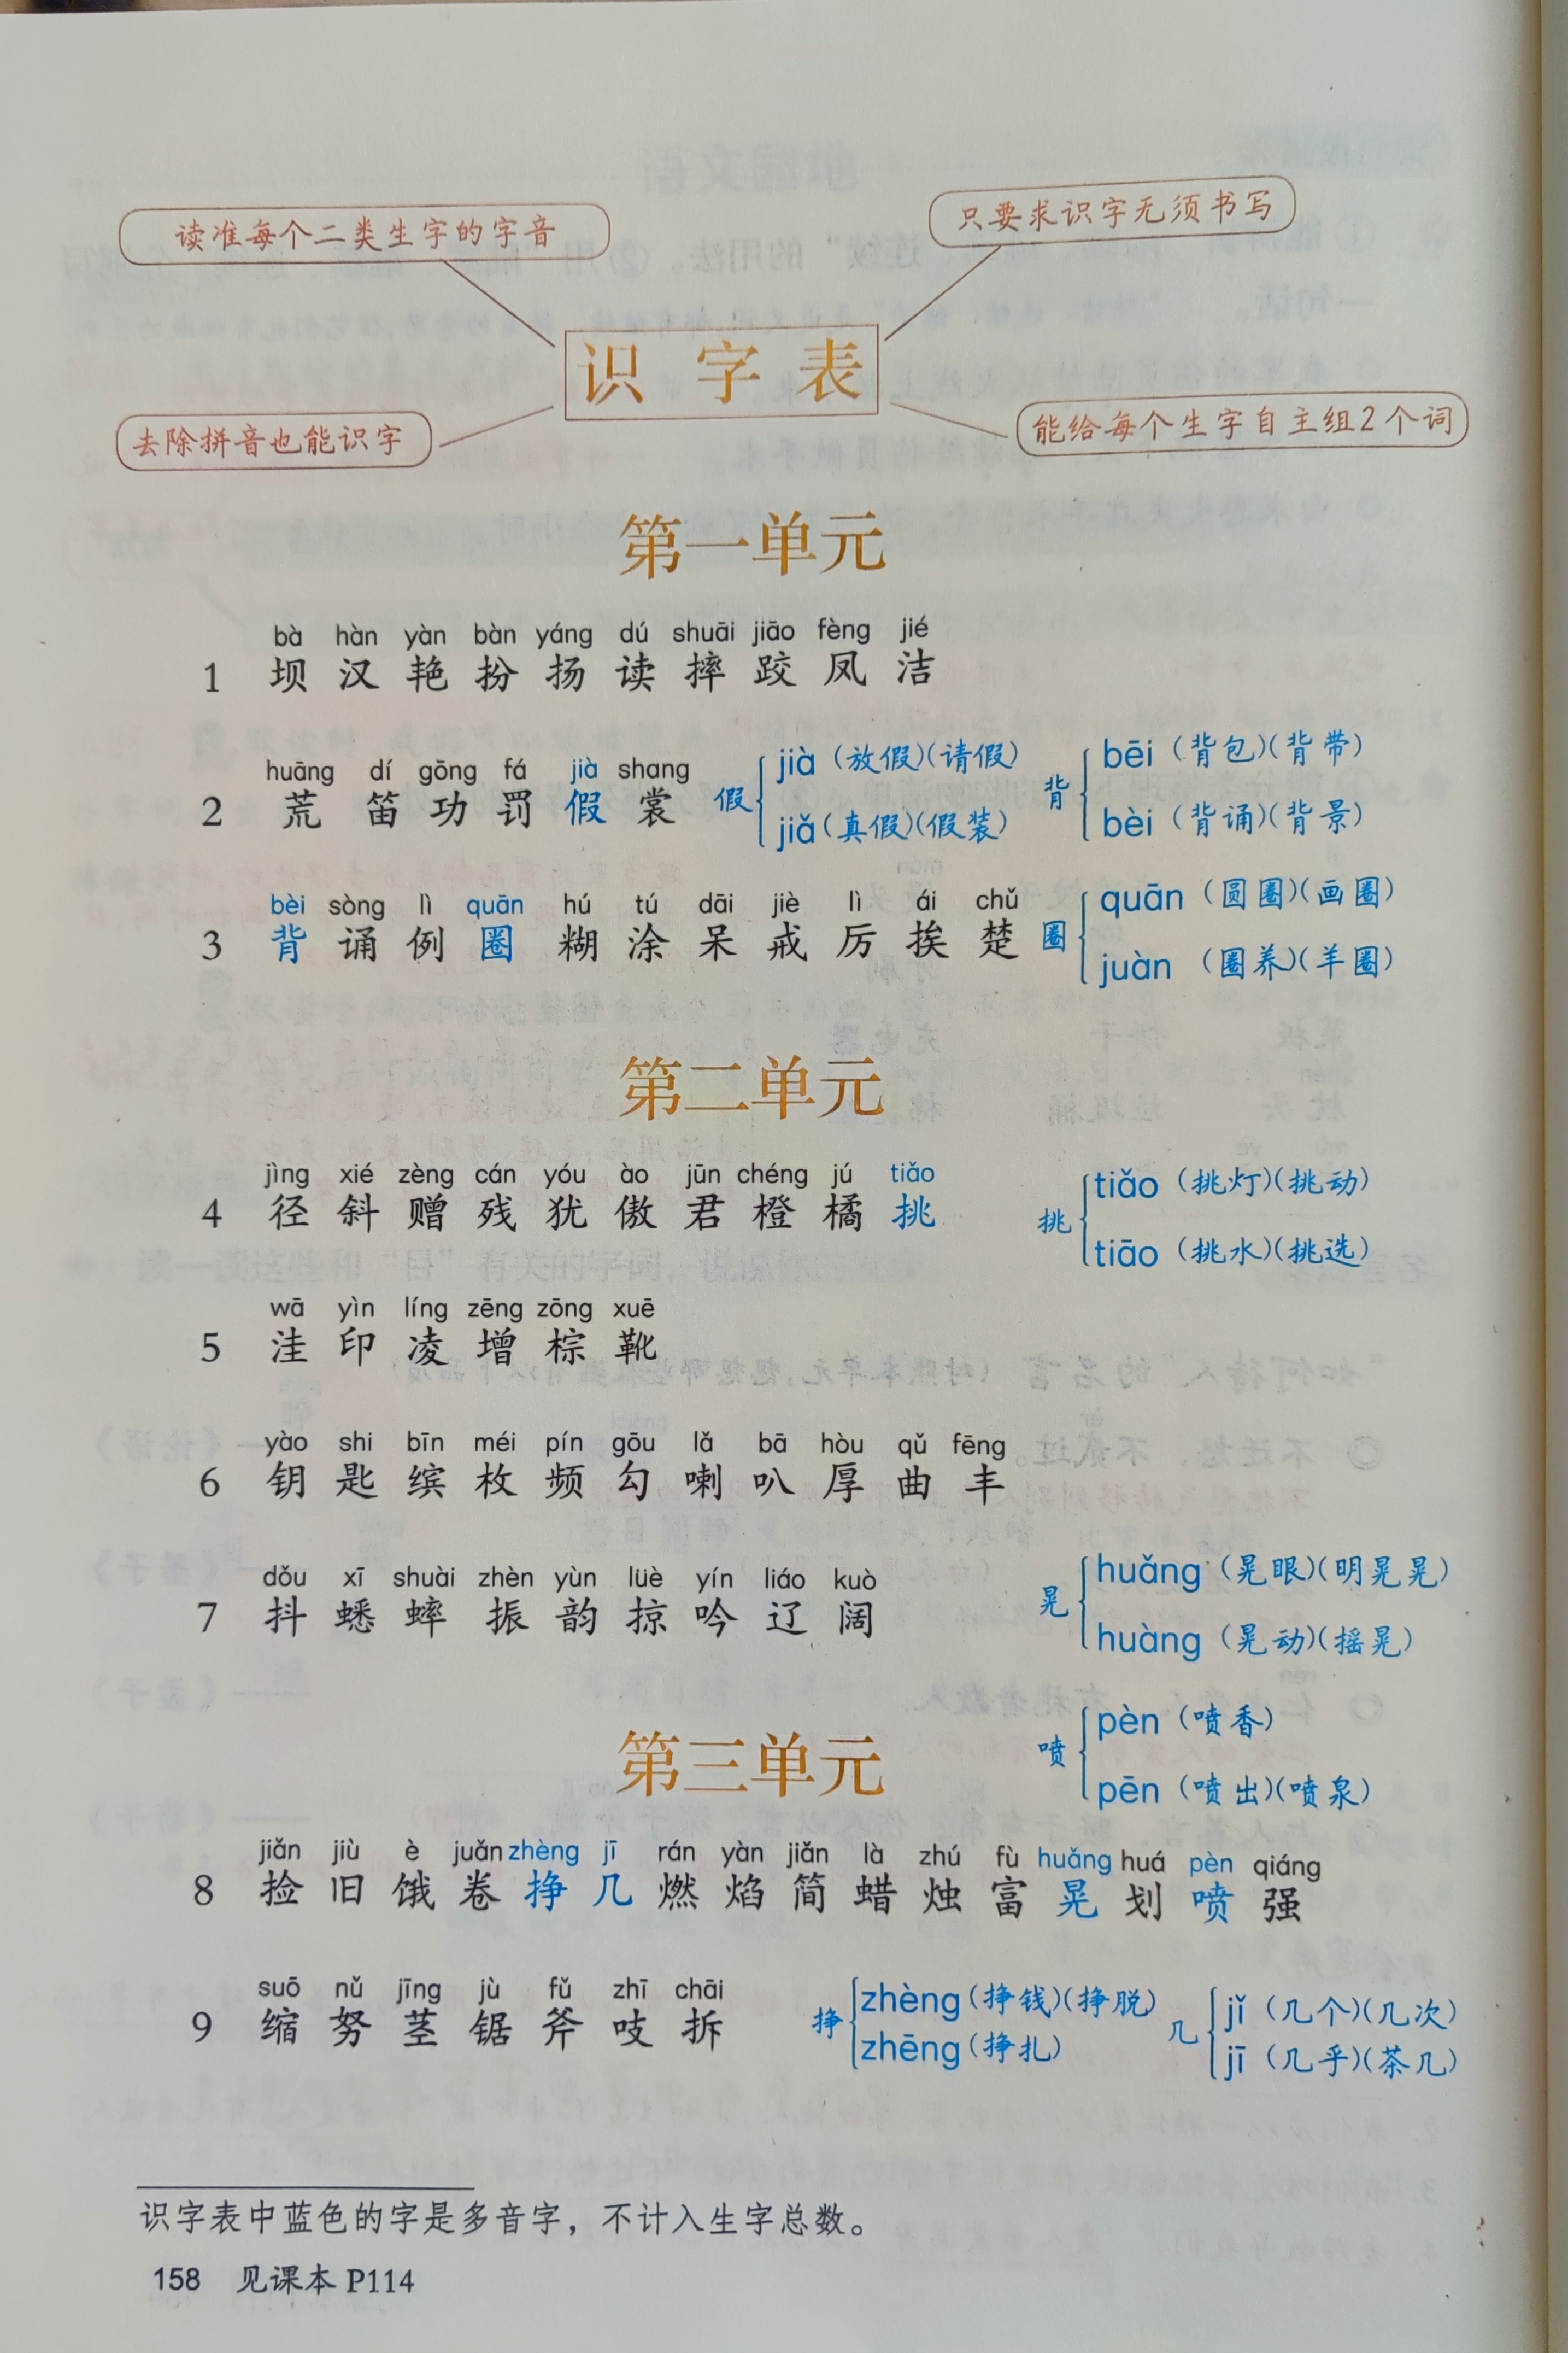 读准每个二类生字的字音
只要求识字无须书写
识字表
去除拼音也能识字
能给每个生字自主组2个词
第一单元
bà hàn yàn bàn yáng dú shuāi jiāo fèng jié
1 坝 汉 艳 扮 扬 读 摔 跤 凤 洁
huāng dí gōng fá jià shang
2 荒 笛 功 罚 假 裳
假 jià（放假）（请假）
jiǎ（真假）（假装）
背 bēi（背包）（背带）
bèi（背诵）（背景）
bèi sòng lì quān hú tú dāi jiè lì ái chǔ
3 背 诵 例 圈 糊 涂 呆 戒 厉 挨 楚
圈 quān（圆圈）（画圈）
juàn（圈养）（羊圈）
第二单元
jìng xié zèng cán yóu ào jūn chéng jú tiǎo
4 径 斜 赠 残 犹 傲 君 橙 橘 挑
挑 tiǎo（挑灯）（挑动）
tiāo（挑水）（挑选）
wā yìn líng zēng zōng xuē
5 洼 印 凌 增 棕 靴
yào shi bīn méi pín gōu lǎ bā hòu qǔ fēng
6 钥 匙 缤 枚 频 勾 喇 叭 厚 曲 丰
dǒu xī shuài zhèn yùn lüè yín liáo kuò
7 抖 蟋 蟀 振 韵 掠 吟 辽 阔
晃 huǎng（晃眼）（明晃晃）
huàng（晃动）（摇晃）
第三单元
喷 pèn（喷香）
pēn（喷出）（喷泉）
jiǎn jiù è juǎn zhèng jī rán yàn jiǎn là zhú fù huǎng huá pèn qiáng
8 捡 旧 饿 卷 挣 几 燃 焰 简 蜡 烛 富 晃 划 喷 强
suō nǔ jīng jù fǔ zhī chāi
9 缩 努 茎 锯 斧 吱 拆
挣 zhèng（挣钱）（挣脱）
zhēng（挣扎）
几 jǐ（几个）（几次）
jī（几乎）（茶几）
识字表中蓝色的字是多音字，不计入生字总数。
158 见课本 P114